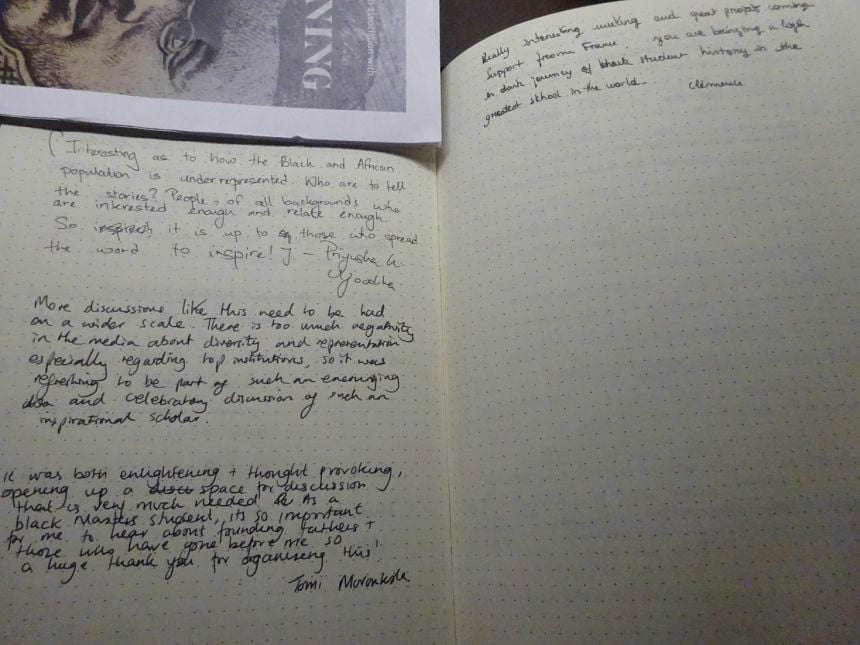 in association with
VING
#
[Interesting as to how the Black and African
population is underrepresented. Who are to tell
the stories? People of all backgrounds who
are interested enough and relate enough.
So it is up to those who spread
the word to inspire!] - Priyusha K.
More discussions like this need to be had
on a wider scale. There is too much negativity
in the media about diversity and representation
especially regarding top institutions, so it was
refreshing to be part of such an encouraging
and celebratory discussion of such an
inspirational scholar.
It was both enlightening + thought provoking,
opening up a space for discussion
that is very much needed. As a
black Masters student, its so important
for me to hear about founding fathers +
those who have gone before me so
a huge thank you for organising this!
Tomi
Really interesting meeting and great project coming
support from France. you are bringing a light
in dark journey of black student history in the
greatest school in the world. Clémence